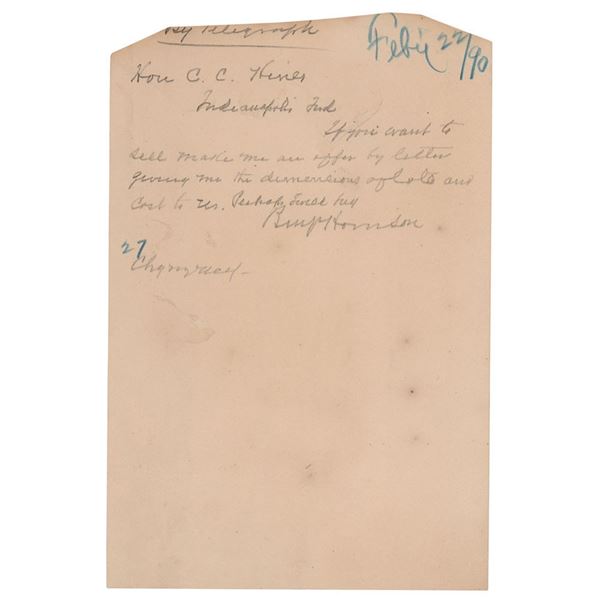 By Telegraph
Feby 22/90
Hon C. C. Hines
Indianapolis Ind
If you want to
sell make me an offer by letter
giving me the dimensions of lots and
cost to us. Perhaps I will buy
Benj Harrison
27
Chg my acct